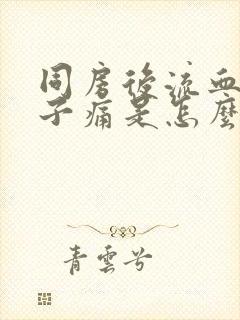 同房後流血
子痛是怎麼
青雲兮